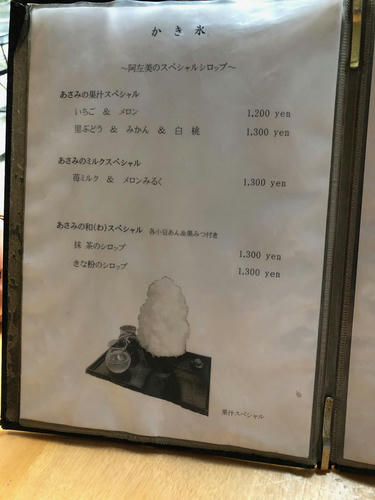 かき氷
～阿左美のスペシャルシロップ～
あさみの果汁スペシャル
いちご ＆ メロン 1,200 yen
里ぶどう ＆ みかん ＆ 白桃 1,300 yen
あさみのミルクスペシャル
苺ミルク ＆ メロンみるく 1,300 yen
あさみの和(わ)スペシャル 各小豆あん&黒みつ付き
抹茶のシロップ 1,300 yen
きな粉のシロップ 1,300 yen
果汁スペシャル